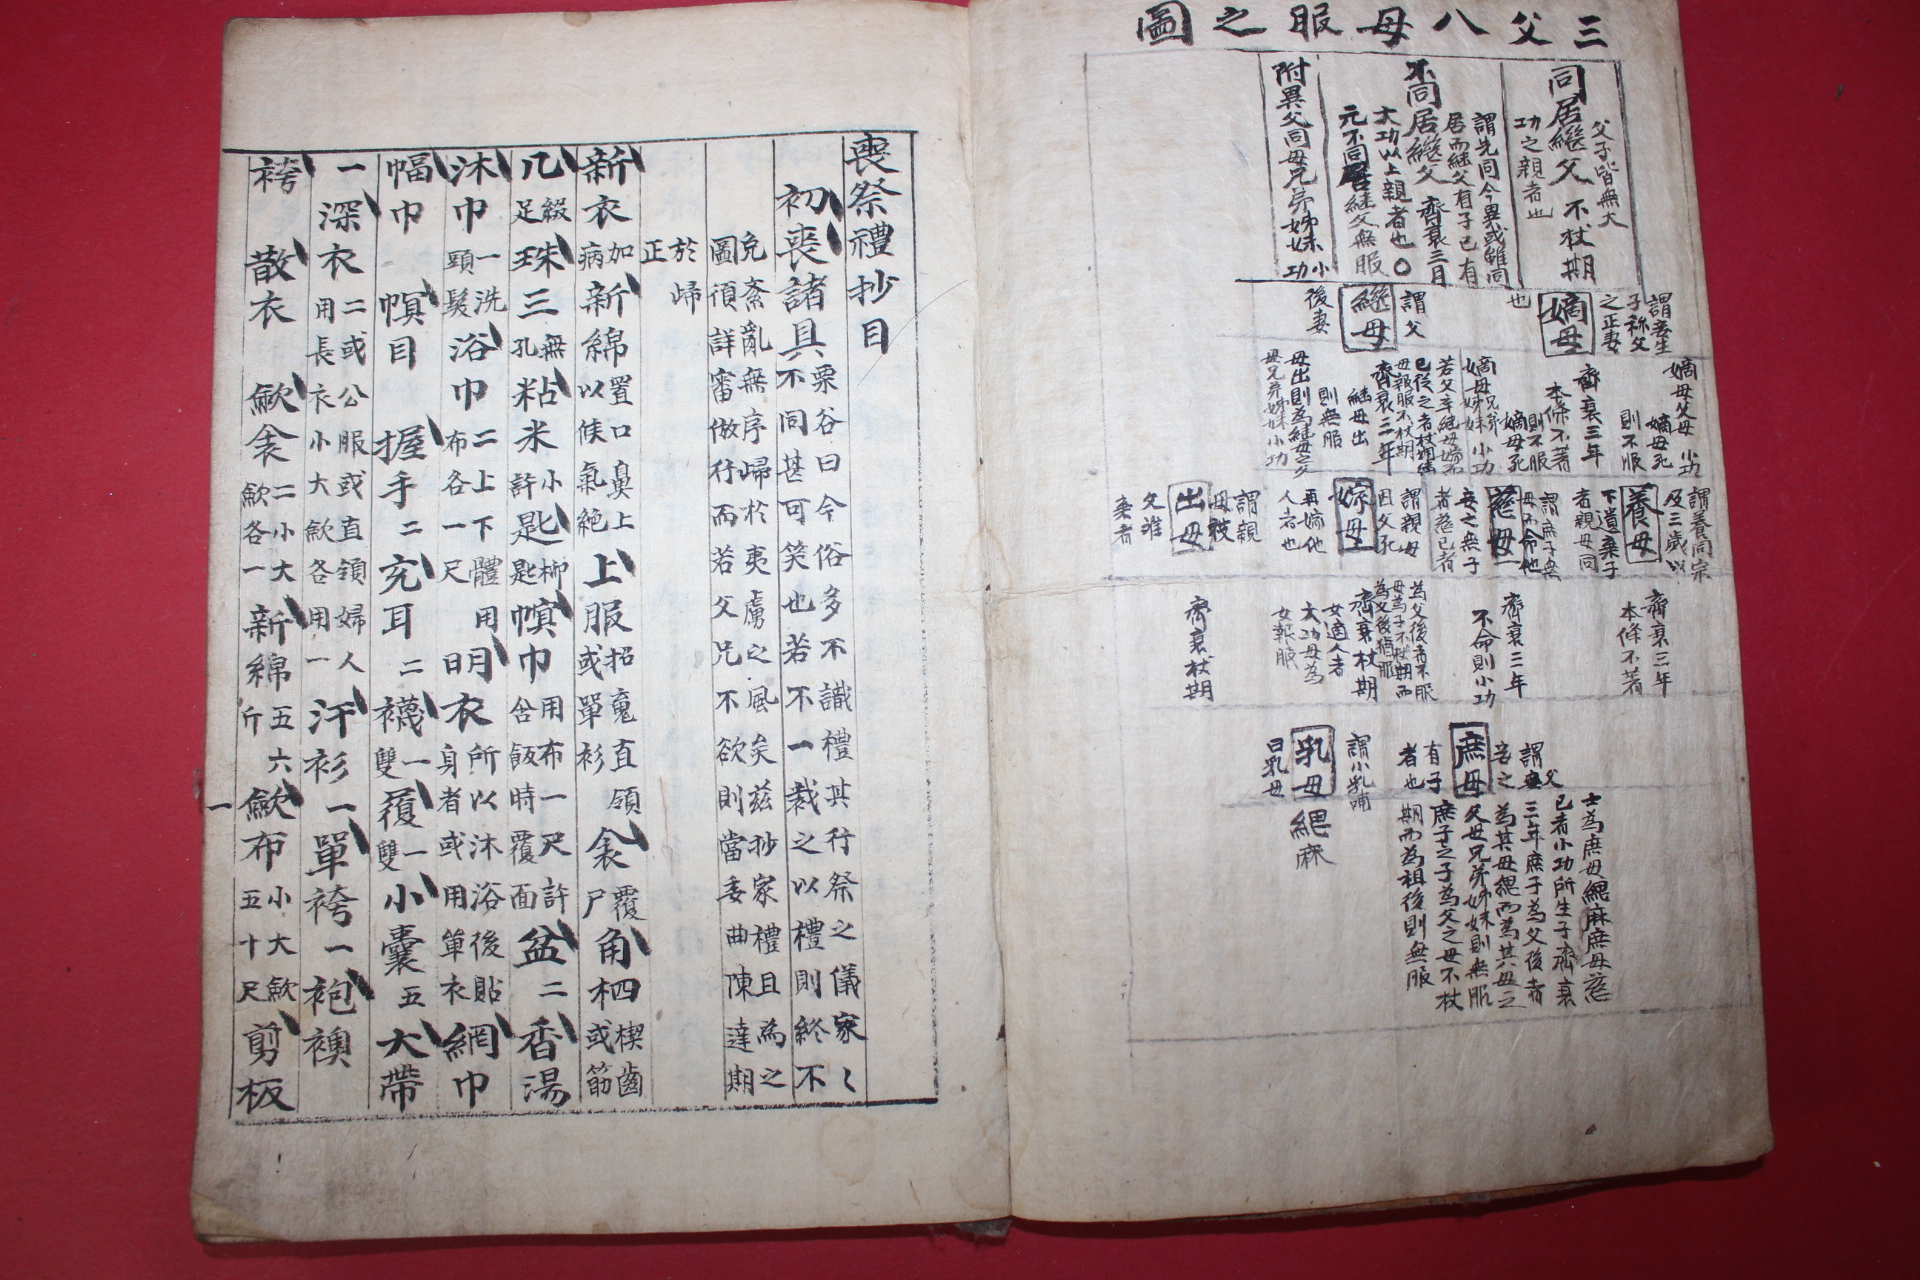 三父八母服之圖
父子皆無大
功之親者也
同居繼父 不杖期
謂先同今異或雖同
居而繼父有子已有
不同居繼父 齊衰三月
大功以上親者也〇
元不同居繼父無服
附異父同母兄弟姊妹小功
謂妾生
子称父
之正妻
也
嫡母
謂父
後妻
繼母
嫡母父母 小功
嫡母死
則不服
齊衰三年
本條不著
嫡母兄弟
姊妹 小功
嫡母死
則不服
若父卒繼母嫁而
已從之者杖期繼
母報服不杖期
齊衰三年
繼母出
則無服
母出則為繼母之父
母兄弟姊妹小功
謂養同宗
及三歲以
下遺棄子
者親母同
養母
謂庶子無
母而命他
妾之無子
者慈己者
慈母
謂親母
因父死
再嫁他
人者也
嫁母
謂親
母被
父離
棄者
出母
齊衰三年
本條不著
齊衰三年
不命則小功
為父後者不服
母為子不杖期而
為父後猶服
齊衰杖期
女適人者
大功母為
女報服
齊衰杖期
謂父
妾之
有子
者也
庶母
謂小乳哺
曰乳母
乳母 緦麻
士為庶母緦麻庶母慈
已者小功所生子齊衰
三年庶子為父後者
為其母緦而為其母之
父母兄弟姊妹則無服
庶子之子為父之母不杖
期而為祖後則無服
喪祭禮抄目
初喪諸具 栗谷曰今俗多不識禮其行祭之儀家〻
不同甚可笑也若不一裁之以禮則終不
免紊亂無序歸於夷虜之風矣茲抄家禮且為之
圖須詳審倣行而若父兄不欲則當委曲陳達期
於歸
正
新衣 加新綿 置口鼻上 上服 招䰟直領 衾 覆 角柶 楔齒
病 以候氣絶 或單衫 尸 或筯
几 綴 珠三 無 粘米 小 匙 柳 幎巾 用布一尺許 盆二香湯
足 孔 許 匙 含飯時覆面
沐巾 一洗 浴巾 二上下體用 明衣 所以沐浴後貼 網巾
頭髮 布各一尺 日 身者或用單衣
幅巾 幎目 握手二充耳二襪 一 履 一 小囊五大帶
雙 雙
一深衣 二或公服或直領婦人 汗衫一單袴一袍襖
用長衣小大歛各用一
袴 散衣 歛衾 二小大 新綿 五六 歛布 小大歛 剪板
歛各一 斤 五十尺
一